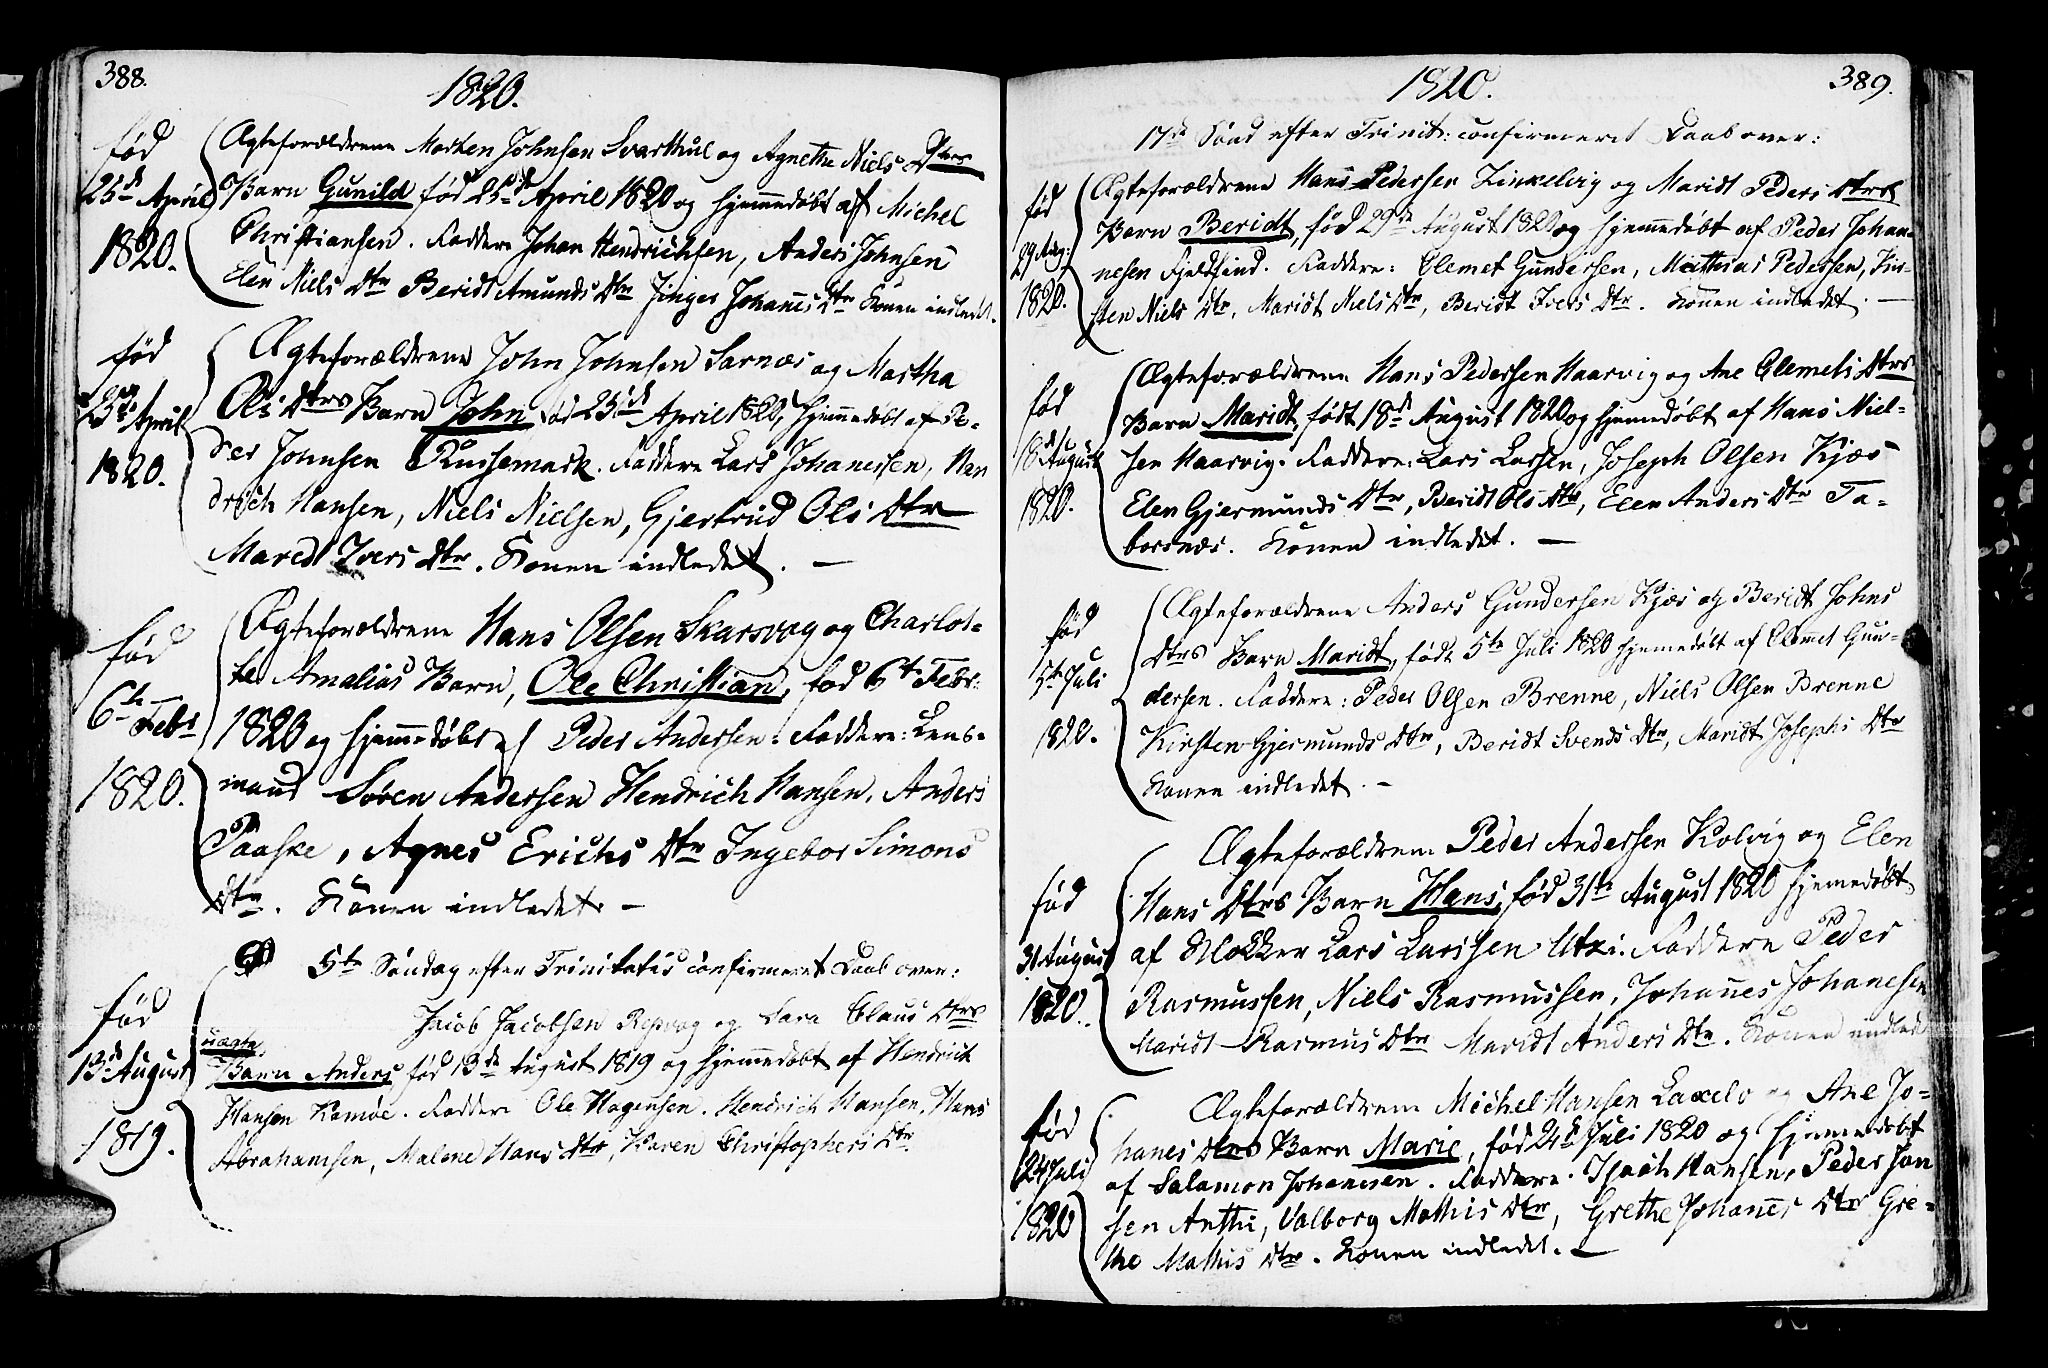 388.
1820.
fød
25de April
1820.
Ægteforældrene Morten Johnsen Svarthul og Agnethe Niels Dtrs
Barn Gunild fød 25de April 1820 og hjemmedøbt af Michel
Christiansen. Faddere Johan Hendrichsen, Anders Johnsen
Elen Niels Dtr Beridt Amunds Dtr Zinger Johanes Dtr Konen indledet.
fød
25de April
1820.
Ægteforældrene John Johnsen Sarnæs og Martha
Ols Dtrs Barn John fød 25de April 1820, hjemmedøbt af Pe-
der Johnsen Russemark. Faddere Lars Johanessen, Hen
drich Hansen, Niels Nielsen, Gjertrud Ols Dtr
Maredt Ivers Dtr. Konen indledet. —
fød
6te Febr
1820.
Ægteforældrene Hans Olsen Skarsvog og Charlot-
te Amalias Barn, Ole Christian, fød 6te Febr.
1820 og hjemmedøbt af Peder Andersen. Faddere: Lens-
mand Søren Andersen Hendrich Hansen. Anders
Paaske, Agnes Erichs Dtr Ingebor Simons
Dtr. Konen indledet. —
5te Søndag efter Trinitatis confirmeret Daab over:
fød
13de August
1819.
Jacob Jacobsen Repvog og Sara Claus Dtrs
uægte
Barn Anders fød 13de August 1819 og hjemmedøbt af Hendrich
Hansen Kamøe. Faddere Ole Hagensen. Hendrich Hansen, Hans
Abrahamsen, Malene Hans Dtr, Karen Christophers Dtr.
389.
1820.
17de Sønd efter Trinit: confirmeret Daab over:
fød
29 Aug:
1820.
Ægteforældrene Hans Pedersen Zinkelvig og Maridt Peders Dtrs
Barn Beridt, fød 29de August 1820 og hjemmedøbt af Peder Johan-
nesen Fjeldfind. Faddere: Clemet Gundersen, Mathias Pedersen, Kir-
sten Niels Dtr, Maridt Niels Dtr, Beridt Ivers Dtr. Konen indledet. —
fød
18de August
1820.
Ægteforældrene Hans Pedersen Haarvig og Ane Clemets Dtrs
Barn Maridt, født 18de August 1820 og hjemedøbt af Hans Niel-
sen Haarvig. Faddere: Lars Larsen, Joseph Olsen Kjæs
Elen Gjermunds Dtr, Beridt Ols Dtr, Elen Anders Dtr Ta-
borsnæs. Konen indledet. —
fød
5te Juli
1820.
Ægteforældrene Anders Gundersen Kjæs og Beridt Johns
Dtrs Barn Maridt, født 5te Juli 1820 hjemedøbt af Clemet Gun-
dersen. Faddere: Peder Olsen Brenne, Niels Olsen Brenne
Kirsten Gjermunds Dtr, Beridt Svends Dtr, Maridt Josephs Dtr
Konen indledet. —
fød
31 August
1820.
Ægteforældrene Peder Andersen Kolvig og Elen
Hans Dtrs Barn Hans, fød 31te August 1820 hjemedøbt
af Klokker Lars Larssen Utzi. Faddere Peder
Rasmussen, Niels Rasmussen, Johannes Johanesen
Maridt Rasmus Dtr Maridt Anders Dtr. Konen indled
fød
24 Juli
1820
Ægteforældrene Michel Hansen Laxelv og Ane Jo-
hanes Dtrs Barn Marie, fød 24de Juli 1820 og hjemmedøbt
af Salamon Johannesen. Faddere. Isach Hansen, Peder Jon
sen Anthi, Valborg Mathis Dtr, Grethe Johanes Dtr Gre-
the Mathis Dtr. Konen indledet. —